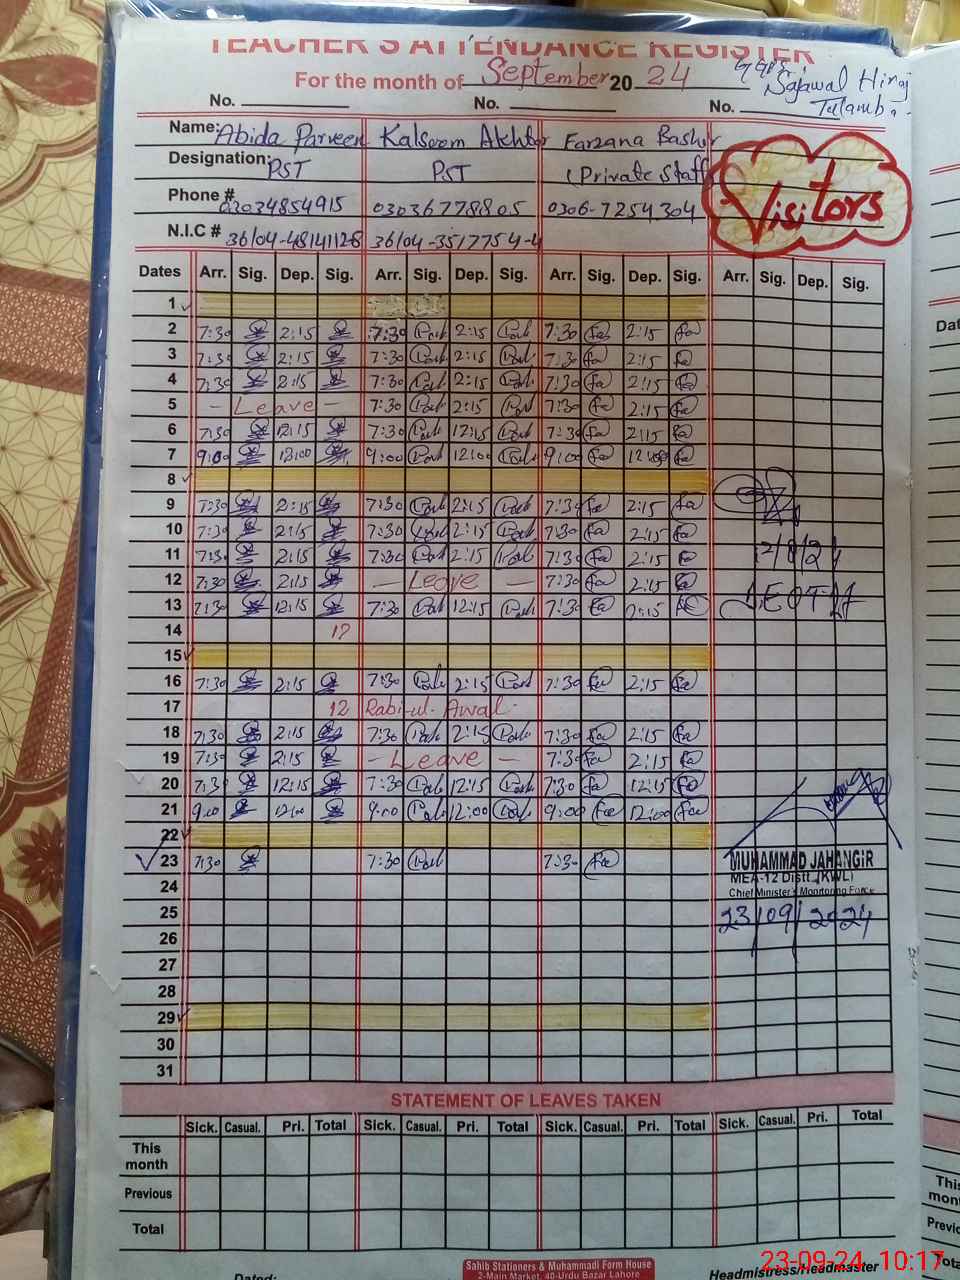 TEACHER'S ATTENDANCE REGISTER
For the month of September 2024 GGPS Sajawal Hiraj
No. No. No. Tulamba
Name: Abida Parveen Kalsoom Akhtar Farzana Bashir
Designation: PST PST (Private Staff)
Visitors
Phone # 03034854915 03036778805 0306-7254304
N.I.C # 36104-4814112-8 36104-3517754-4
Dates Arr. Sig. Dep. Sig. Arr. Sig. Dep. Sig. Arr. Sig. Dep. Sig. Arr. Sig. Dep. Sig.
1
2 7:30 2:15 7:30 2:15 7:30 fa 2:15 fa
3 7:30 2:15 7:30 2:15 7:30 fa 2:15 fa
4 7:30 2:15 7:30 2:15 7:30 fa 2:15 fa
5 - Leave - 7:30 2:15 7:30 fa 2:15 fa
6 7:30 12:15 7:30 12:15 7:30 fa 2:15 fa
7 9:00 12:00 9:00 12:00 9:00 fa 12:00 fa
8
9 7:30 2:15 7:30 2:15 7:30 fa 2:15 fa
10 7:30 2:15 7:30 2:15 7:30 fa 2:15 fa
11 7:30 2:15 7:30 2:15 7:30 fa 2:15 fa
12 7:30 2:15 - Leave - 7:30 fa 2:15 fa
13 7:30 12:15 7:30 12:15 7:30 fa
14
15
16 7:30 2:15 7:30 2:15 7:30 fa 2:15 fa
17 12 Rabi-ul-Awal.
18 7:30 2:15 7:30 2:15 7:30 fa 2:15 fa
19 7:30 2:15 - Leave - 7:30 fa 2:15 fa
20 7:30 12:15 7:30 12:15 7:30 fa 12:15 fa
21 9:00 12:00 9:00 12:00 9:00 fa 12:00 fa
22
23 7:30 7:30 7:30 fa
MUHAMMAD JAHANGIR
MEA-12 Distt. (KWL)
Chief Minister's Monitoring Force
24
25 23/09/2024
26
27
28
29
30
31
STATEMENT OF LEAVES TAKEN
Sick. Casual. Pri. Total Sick. Casual. Pri. Total Sick. Casual. Pri. Total Sick. Casual. Pri. Total
This month
Previous
Total
Sahib Stationers & Muhammadi Form House
2-Main Market, 40-Urdu Bazar Lahore
Dated: Headmistress/Headmaster
23-09-24 10:17